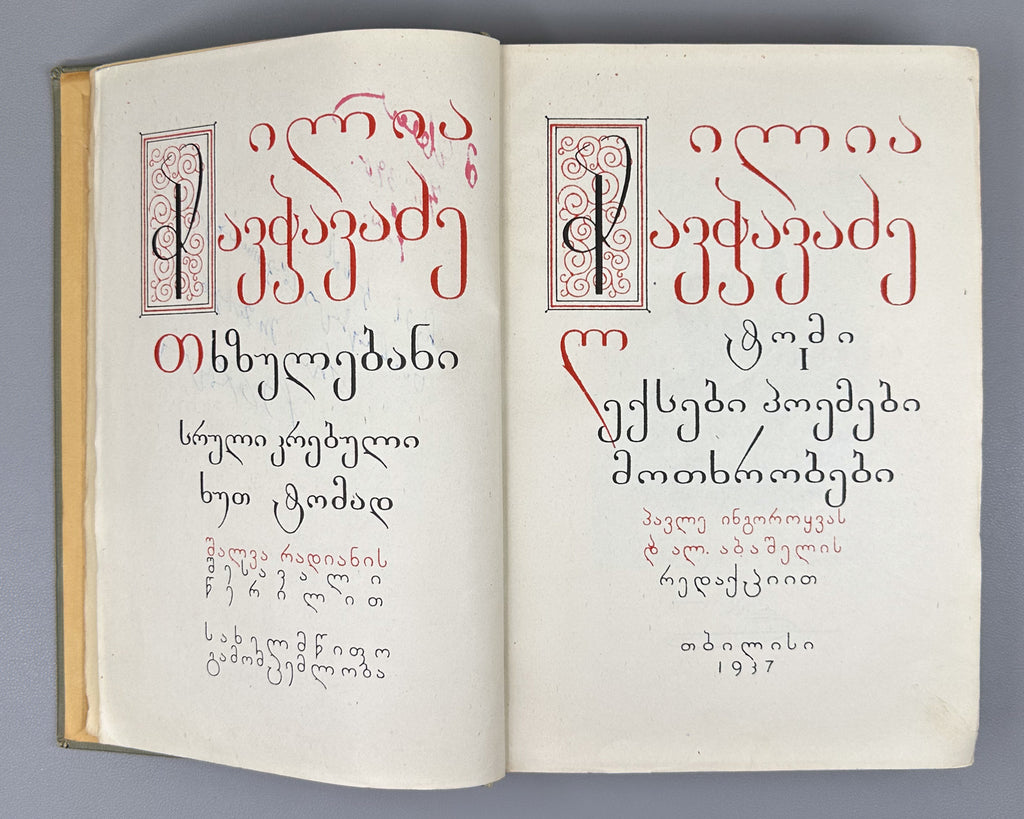 ილია
ჭავჭავაძე
თხზულებანი
სრული კრებული
ხუთ ტომად
შალვა რადიანის
შესავალი
წერილით
სახელმწიფო
გამომცემლობა
ილია
ჭავჭავაძე
ტომი
I
ლექსები პოემები
მოთხრობები
პავლე ინგოროყვას
და ალ. აბაშელის
რედაქციით
თბილისი
1937